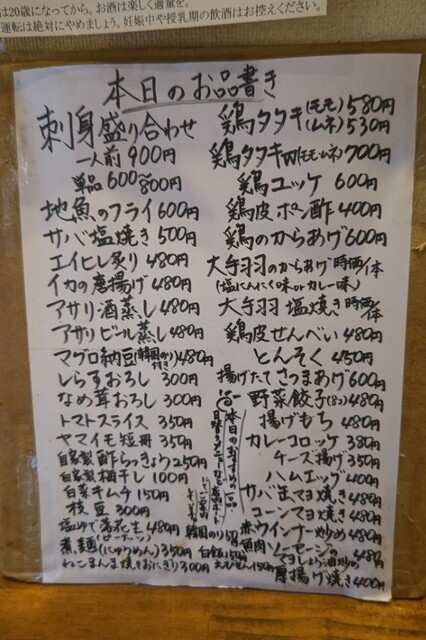 は20歳になってから。お酒は楽しく適量を。
運転は絶対にやめましょう。妊娠中や授乳期の飲酒はお控えください。
本日のお品書き
刺身盛り合わせ
一人前 900円
単品 600〜800円
地魚のフライ 600円
サバ塩焼き 500円
エイヒレ炙り 480円
イカの唐揚げ 480円
アサリ酒蒸し 480円
アサリビール蒸し 480円
マグロ納豆(韓国のり付き) 480円
しらすおろし 300円
なめ茸おろし 300円
トマトスライス 350円
ヤマイモ短冊 350円
自家製 酢らっきょう 250円
自家製 梅干し 100円
白菜キムチ 150円
枝豆 300円
塩ゆで落花生(ピーナッツ) 480円
煮麺(にゅうめん) 350円
ねこまんま焼きおにぎり 300円
鶏タタキ(モモ) 580円
(ムネ) 530円
鶏タタキW(モモムネ) 700円
鶏ユッケ 600円
鶏皮ポン酢 400円
鶏のからあげ 600円
大手羽のからあげ 時価/本
(塩にんにく味orカレー味)
大手羽 塩焼き 時価/本
鶏皮せんべい 480円
とんそく 450円
揚げたてさつまあげ 600円
野菜餃子(8コ) 480円
揚げもち 480円
カレーコロッケ 380円
チーズ揚げ 350円
ハムエッグ 400円
サバ缶マヨ焼き 480円
コーンマヨ焼き 480円
赤ウインナー炒め 480円
魚肉ソーセージのマヨしょう油炒め 480円
厚揚げ焼き 400円
本日のおすすめの一品
韓国のり 50円
白飯 150円
えびせん 150円